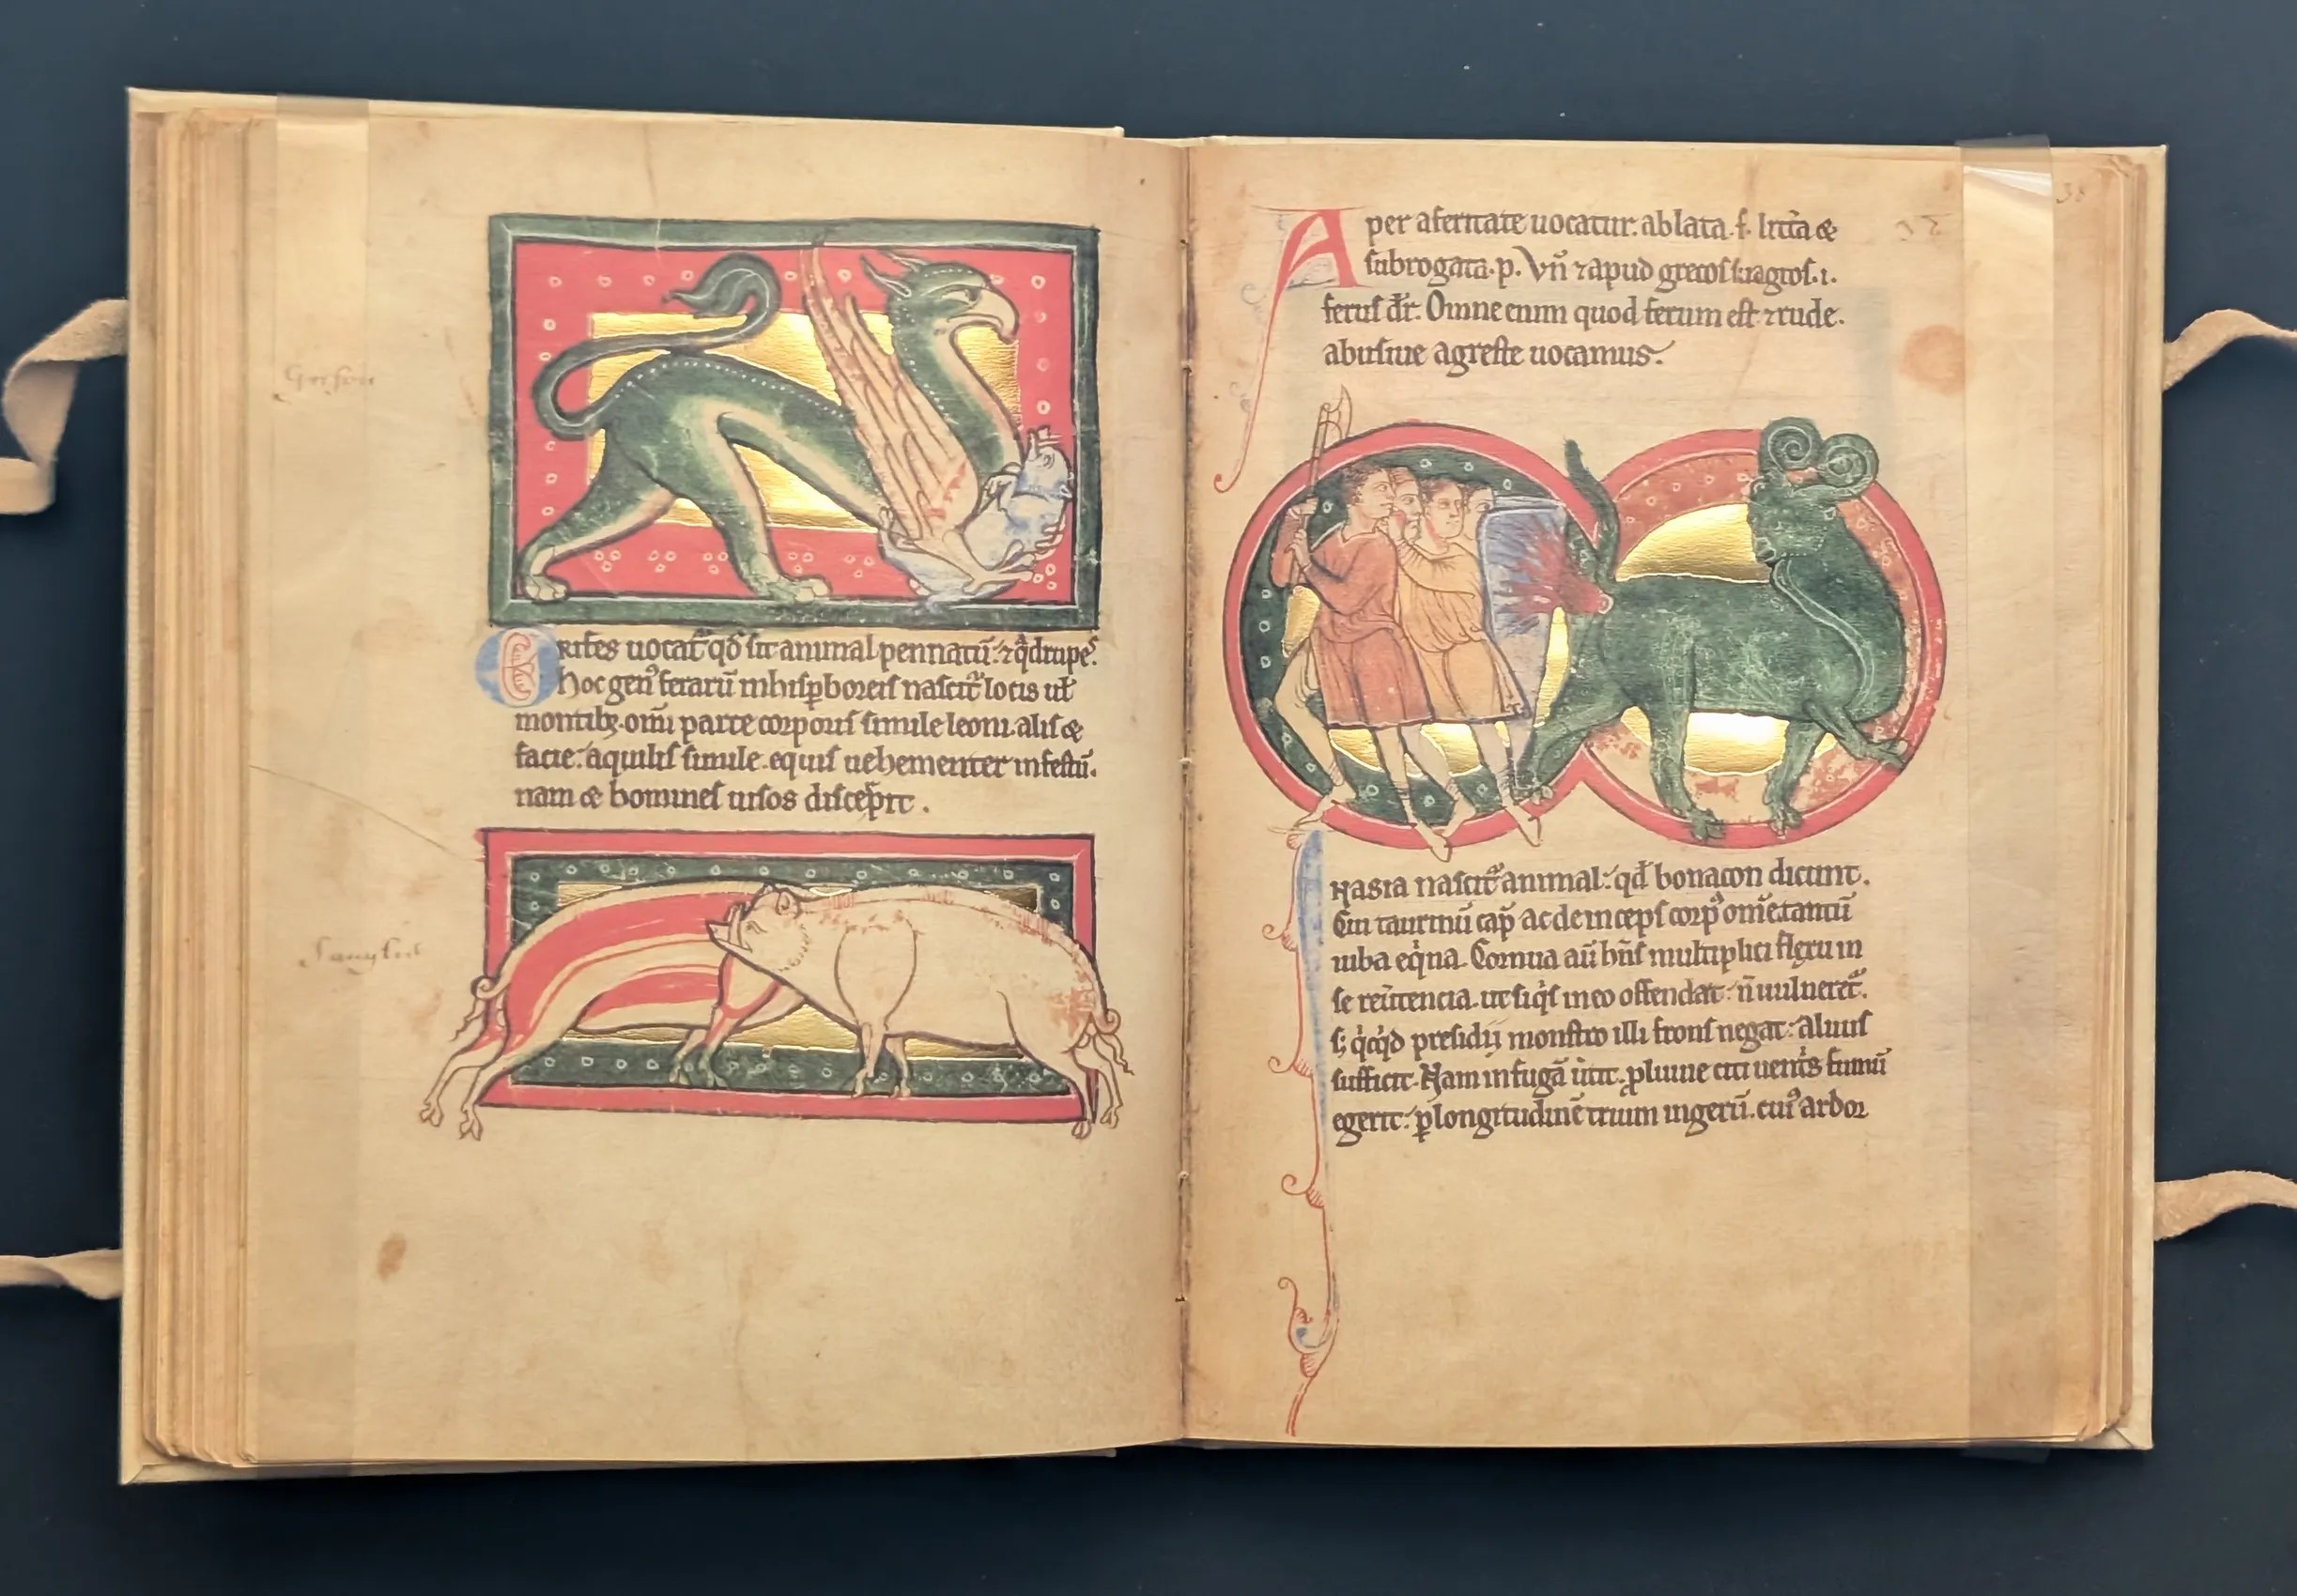 Grifon
Grifes uocat᷑ qđ sit animal pennatū: ⁊ q̇drupes.
hoc genꝰ ferarū in hisꝑboreis nascit᷑ locis uł
montibꝫ. omī parte corporis simile leoni. alis &
facie: aquilis simile. equis uehementer infestū.
nam & homines uisos discerpit.
Aper a feritate uocatur: ablata .f. litt̄a &
subrogata .p. Vn̄ ⁊ apud grecos suagros .i.
ferus dr̄. Omne enim quod ferum est ⁊ rude.
abusiue agreste uocamus.
38
N asia nascit᷑ animal: qđ bonacon dicunt.
Cui taurinū cap̄ ac deinceps corpꝰ om̄e. tantū
iuba eq̇na. Cornua aū hn̄s multiplici flexu in
se reūtencia. ut siq̇s in eo offendat: n̄ uulneret᷑.
sꝫ q̇cq̇d presidij monstro illi frons negat: aluus
sufficit. Nam in fugā u̇tit᷑. ꝓluuie citi uenṫs fumū
egerit: ꝑ longitudinē trium iugerū. cuiꝰ ardor